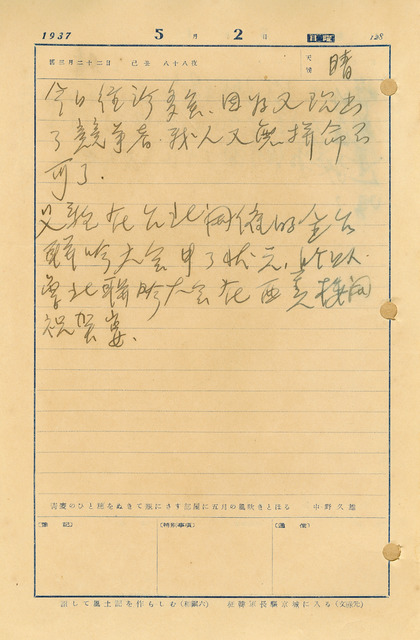 1937 5月 2日 日曜 128
舊三月二十二日 己丑 八十八夜 天候 晴
今日往診多忙、因為又現出
了競爭者、我人又無拼命不
可了.
又輕在台北開催的全台
聯吟大会中了狀元、所以
台北聯吟大会在西美樓開
祝賀宴.
青麥のひと穗をぬきて瓶にさす部屋に五月の風吹きとほる 中野久雄
(豫記) (特別事項) (通信)
詔して風土記を作らしむ(和銅六)